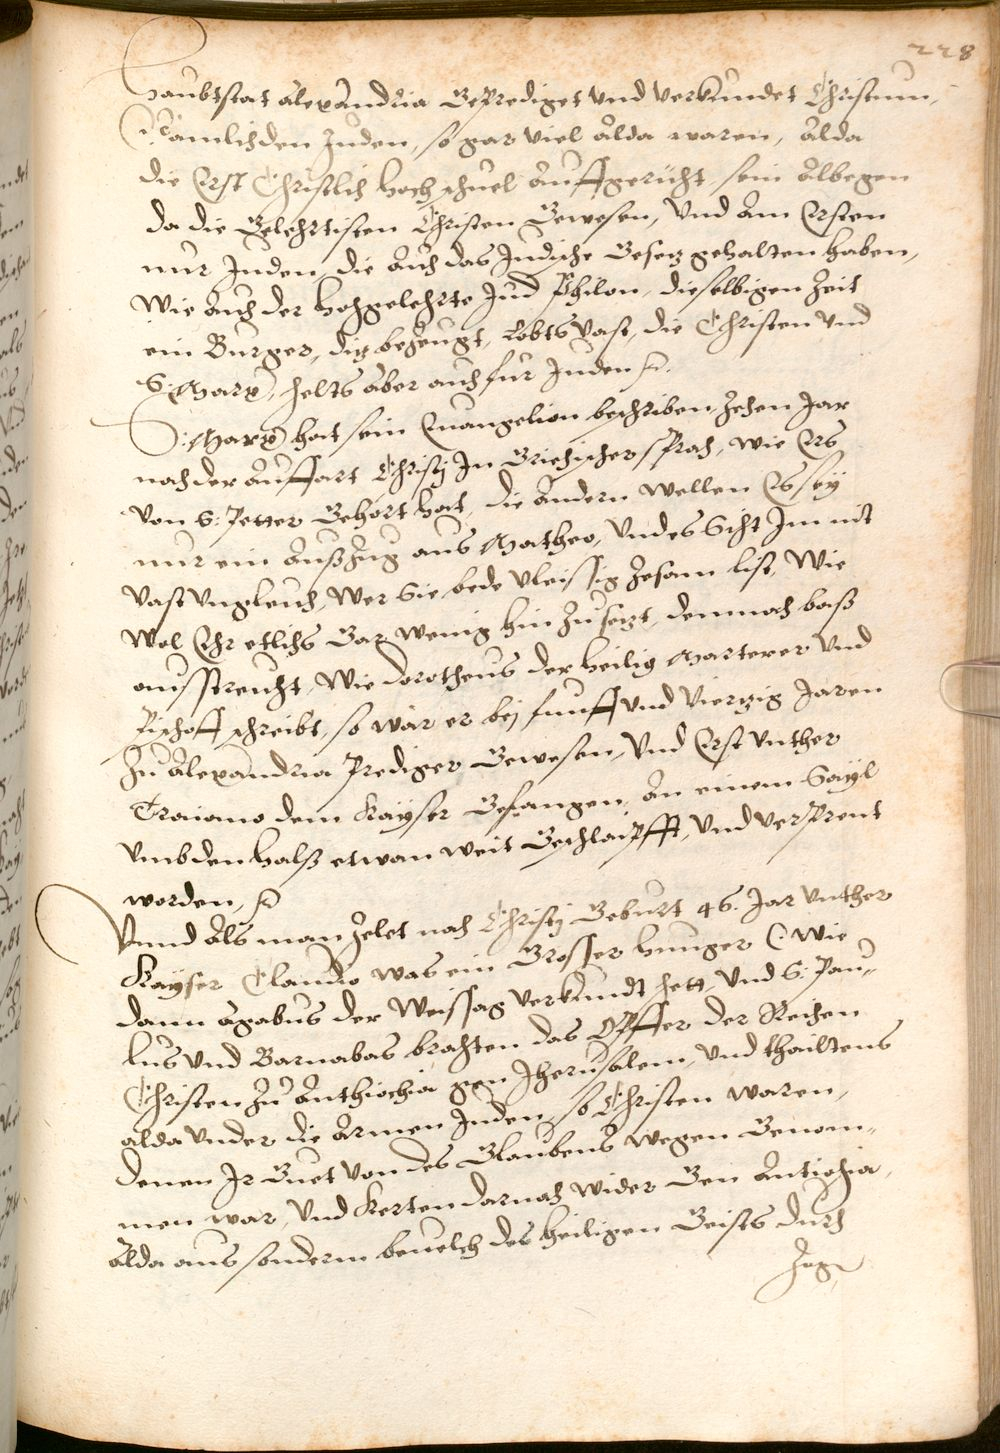 228
Haubtstat Alexandria Geprediget vnd verkundet Christum,
Nämlich den Juden, so gar viel alda waren, alda
die Erst Christlich hochschuel Auffgericht, sein Albegen
da die Gelehrtisten Christen Gewesen, vnd Am Ersten
nur Juden, die Auch das Judische Gesetz gehalten haben,
Wie Auch der hochgelehrte Jud Philon, dieselbigen Zeit
ein Burger, diz bezeugt, Lobts vast, die Christen vnd
S: Marx, helts Aber auch fur Juden
S: Marx hat sein Euangelion beschriben Zehen Jar
nach der Auffart Christj Jn Griechischer sprach, wie Ers
von S: Petter Gehört hat, die Andern wellen Es sey
nur ein Außzug aus Matheo, vnd es Sicht Jm nit
vast vngleich, Wer Sie bede vleissig Zesam list, Wie
wol Ehr etlichs Gar wenig hin Zu setzt, dennnoch baß
ausstreicht, Wie dorotheus der heilig Marterer vnd
Bischoff schreibt, so wär er bej funff vnd vierzig Jaren
Zu Alexandria Prediger Gewesen, vnd Erst vnther
Traiano dem Kayser Gefangen, An einem Sayl
vmb den halß etwan weit Geschlaipfft, vnd versprent
worden,
Vnnd Als man Zelet nach Christj Geburt 46. Jar vnther
Kayser Claudio was ein Grosser hunger (: wie
dann Agabus der Weissag verkundt hett, vnd S: Pau„
lus vnd Barnabas brachten das Opffer der Reichen
Christen Zu Anthiochia gen Jherusalem, vnd thailtens
alda vnder die Armen Juden, so Christen waren,
denen Jr Guet von des Glaubens wegen Genom„
men war, vnd Kerten darnach wider Gen Antiochia,
Alda aus sonderm beuelch des heiligen Geists durch